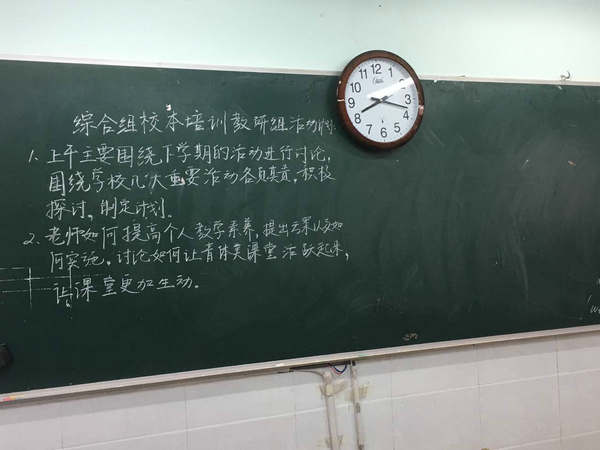 综合组校本培训教研组活动计划:
1、上午主要围绕下学期的活动进行讨论,
围绕学校几大重要活动各负其责。积极
探讨,制定计划。
2、老师如何提高个人教学素养,提出云课以及如
何实施。讨论如何让音体美课堂活跃起来,
让课堂更加生动。
12
1
2
3
4
5
6
7
8
9
10
11